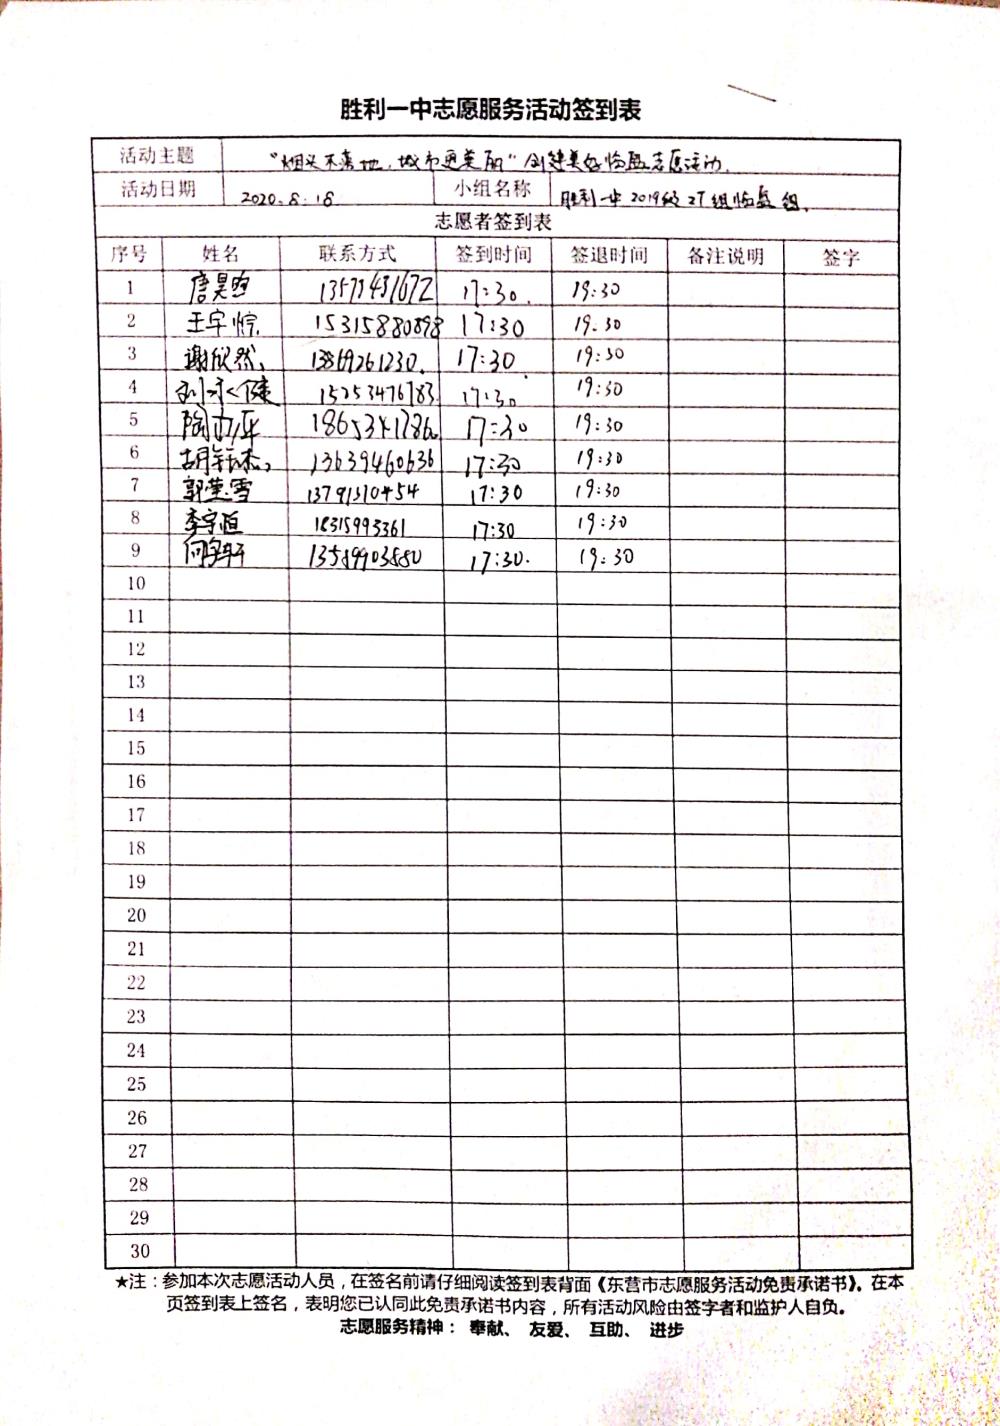 胜利一中志愿服务活动签到表
活动主题 "烟头不落地，城市更美丽"创建美好临盘志愿活动.
活动日期 2020.8.18 小组名称 胜利一中2019级27组临盘组.
志愿者签到表
序号 姓名 联系方式 签到时间 签退时间 备注说明 签字
1 唐昊煦 17:30. 19:30
2 王宇悰 15315880898 17:30 19.30
3 谢欣然 13869261230. 17:30 19:30
4 刘永健 15253476783 17:30. 19:30
5 17:30 19:30
6 13639460636 17:30 19:30
7 郭莹雪 13791310454 17:30 19:30
8 李宇恒 18315993361 17:30 19:30
9 何宇轩 13589903880 17:30. 19:30
10
11
12
13
14
15
16
17
18
19
20
21
22
23
24
25
26
27
28
29
30
★注：参加本次志愿活动人员，在签名前请仔细阅读签到表背面《东营市志愿服务活动免责承诺书》。在本
页签到表上签名，表明您已认同此免责承诺书内容，所有活动风险由签字者和监护人自负。
志愿服务精神： 奉献、 友爱、 互助、 进步